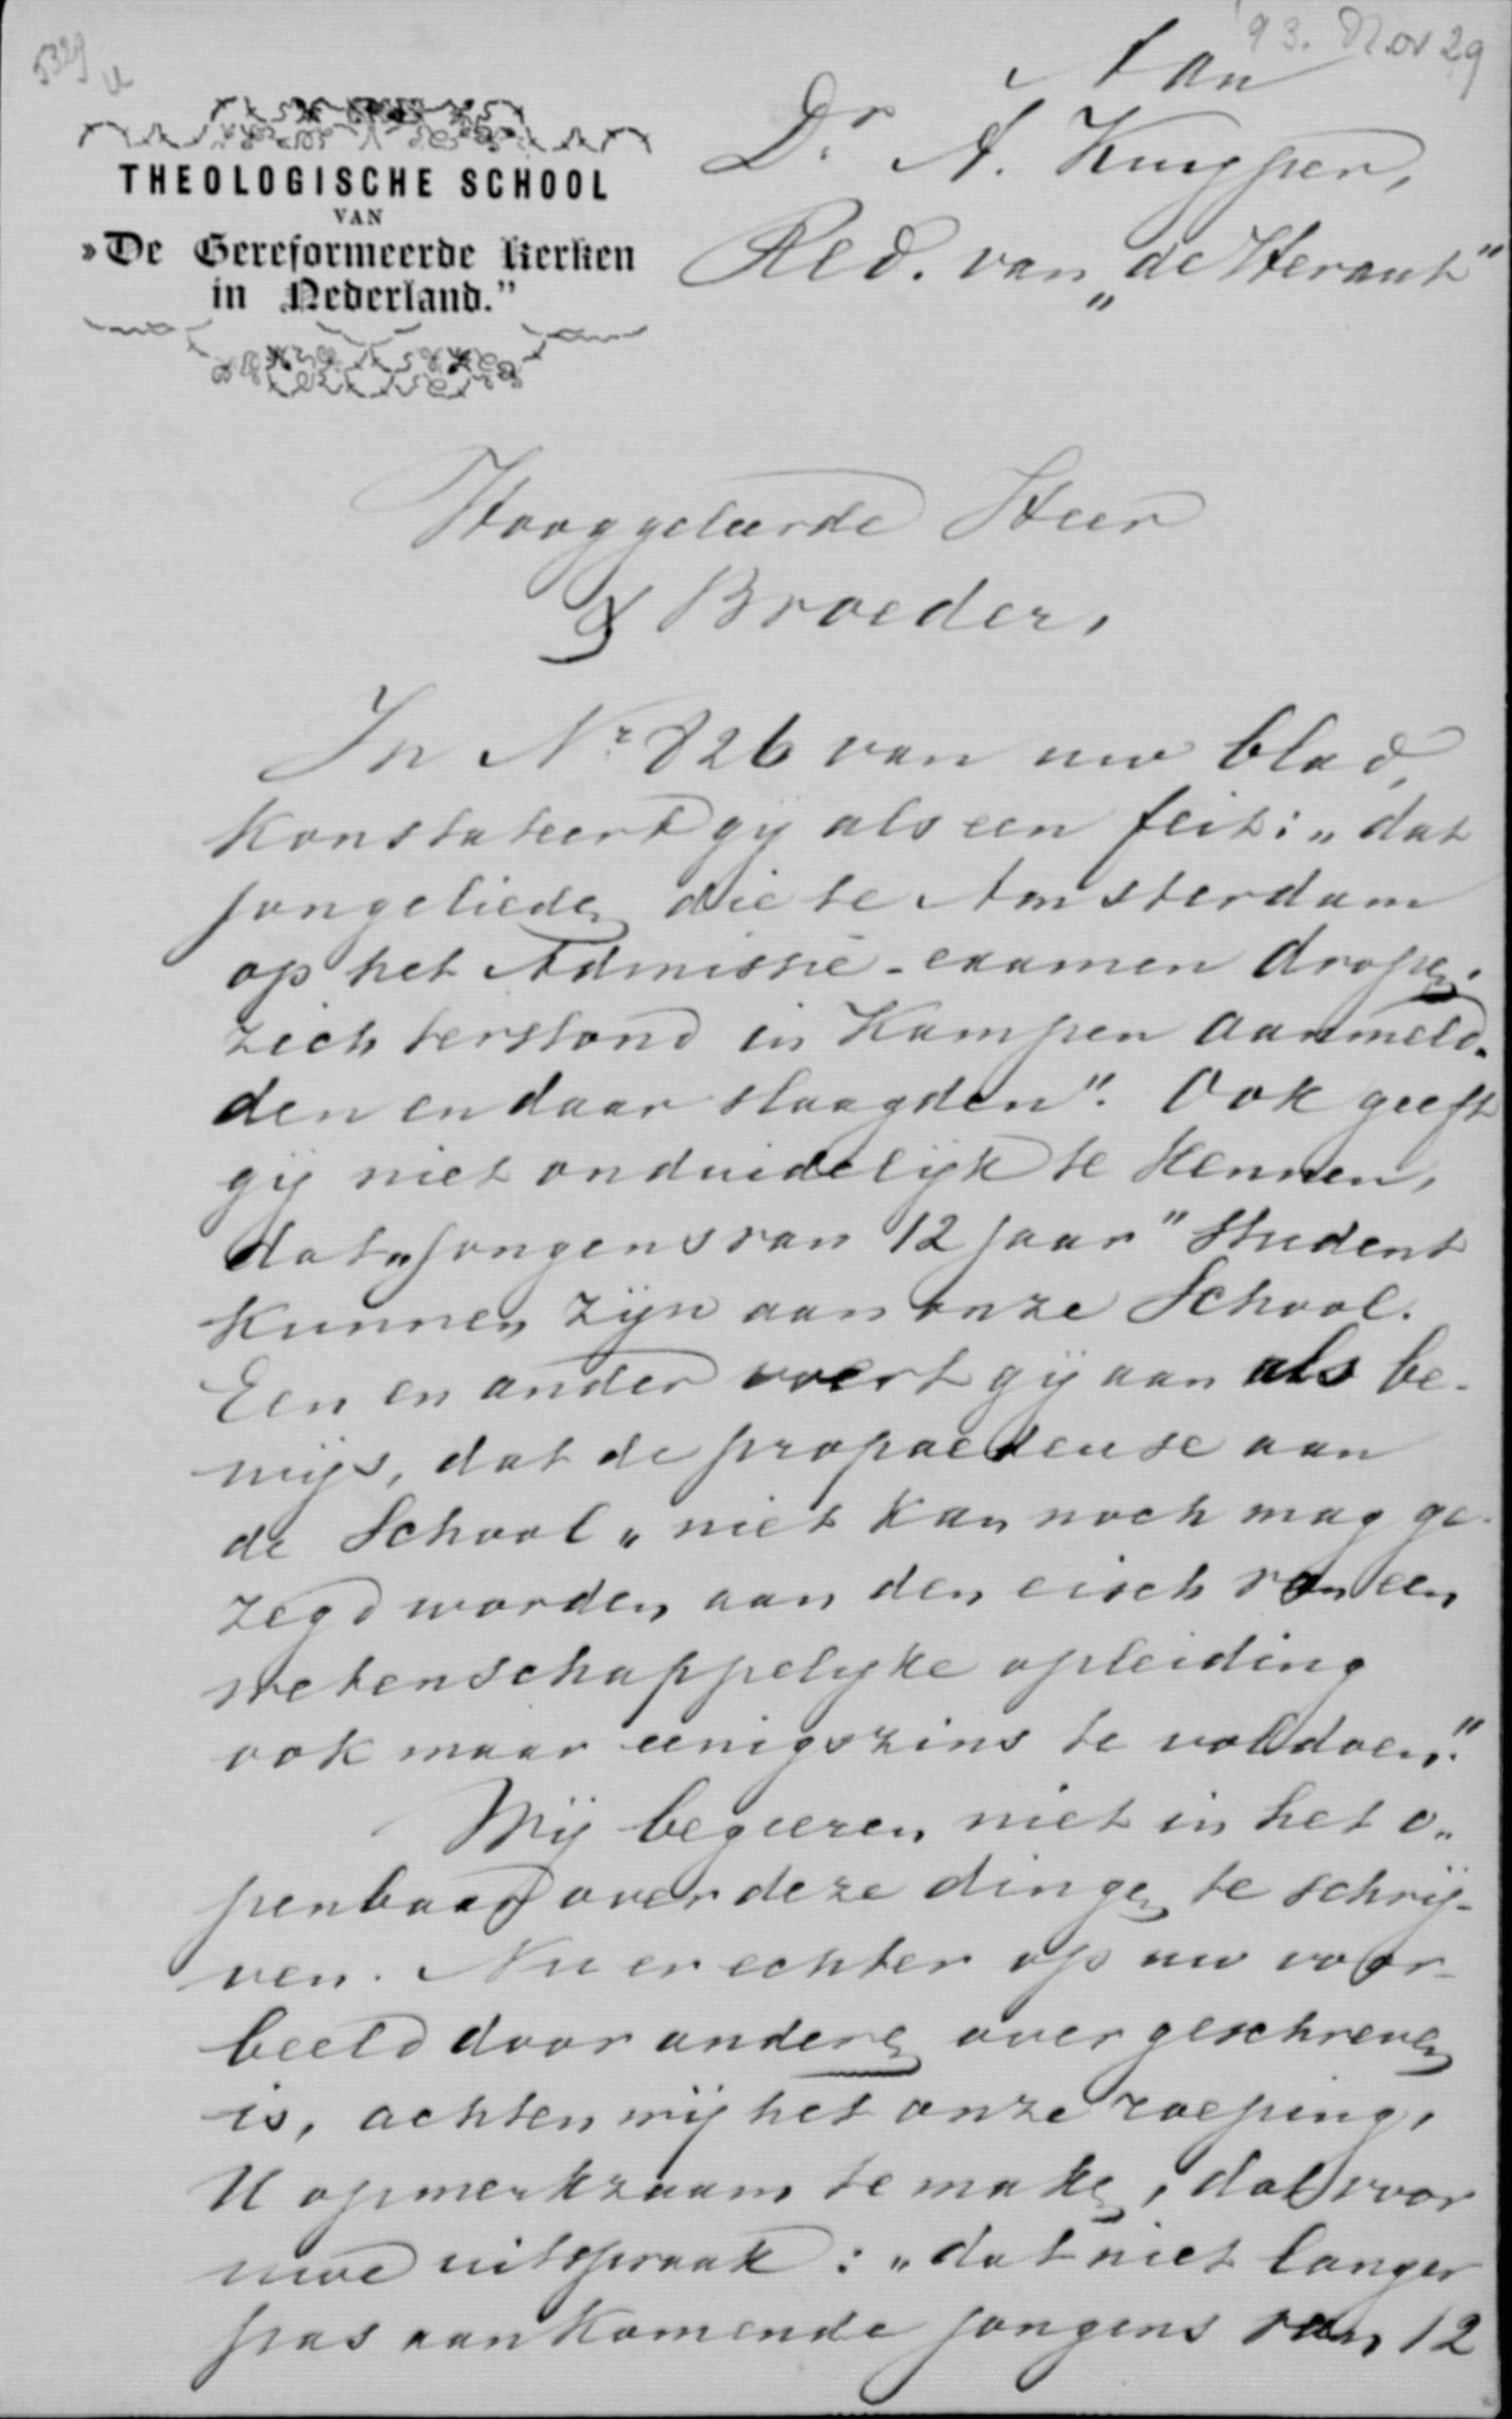 5329
'93. Nov 29
THEOLOGISCHE SCHOOL
VAN
»De Gereformeerde Kerken
in Nederland."
Aan
Dr. A. Kuyper,
Red. van „de Heraut"
Hooggeleerde Heer
& Broeder,
In Nr 826 van uw blad,
konstateert gij als een feit: „dat
jongelieden die te Amsterdam
op het Admissie-examen dropen,
zich terstond in Kampen aanmeld-
den en daar slaagden". Ook geeft
gij niet onduidelijk te kennen,
dat „jongens van 12 jaar" student
kunnen zijn aan onze School.
Een en ander voert gij aan als be-
wijs, dat de propaedeuse aan
de School „niet kan noch mag ge-
zegd worden aan den eisch van een
wetenschappelijke opleiding
ook maar eenigszins te voldoen."
Wij begeeren niet in het o-
penbaar over deze dingen te schrij-
ven. Nu er echter op uw voor-
beeld door anderen over geschreven
is, achten wij het onze roeping,
U opmerkzaam te maken, dat voor
uwe uitspraak: „dat niet langer
pas aankomende jongens van 12